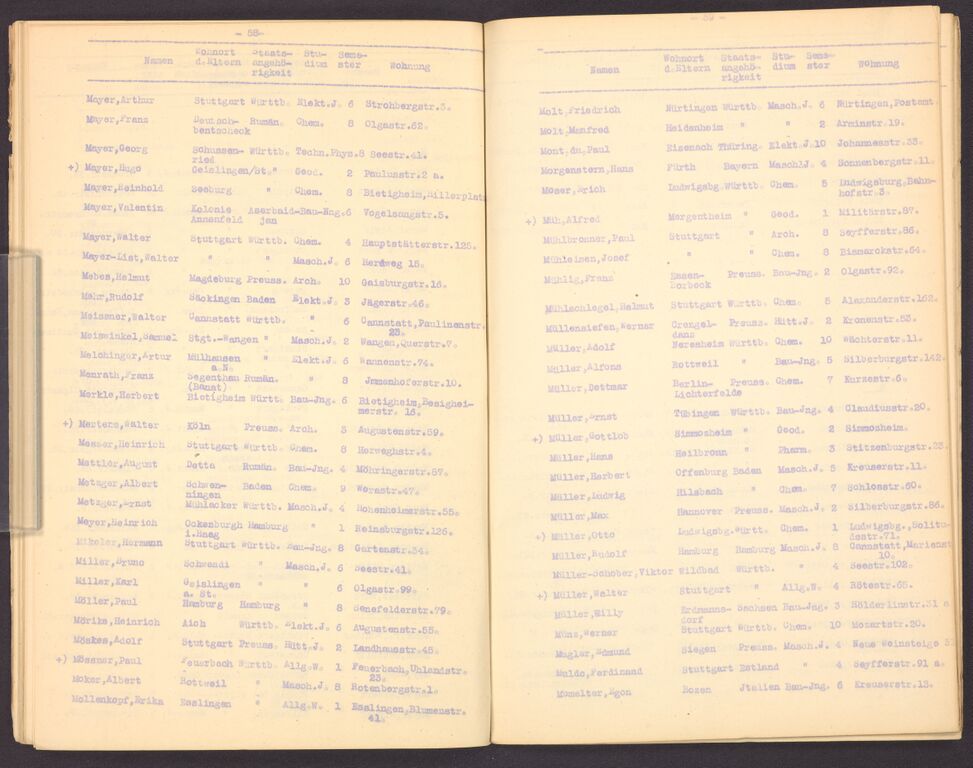 - 58-
Namen Wohnort d.Eltern Staats-angehö-rigkeit Stu-dium Seme-ster Wohnung
Mayer,Arthur Stuttgart Württb. Elekt.J. 6 Strohbergstr.3.
Mayer,Franz Deutsch-bentscheck Rumän. Chem. 8 Olgastr.62.
Mayer,Georg Schussen-ried Württb. Techn.Phys.8 Seestr.41.
+) Mayer,Hugo Geislingen/St. " Geod. 2 Paulusstr.2 a.
Mayer,Reinhold Seeburg " Chem. 8 Bietigheim,Hillerplatz
Mayer,Valentin Kolonie Annenfeld Aserbaid-jan Bau-Jng.6 Vogelsangstr.5.
Mayer,Walter Stuttgart Württb. Chem. 4 Hauptstätterstr.125.
Mayer-List,Walter " " Masch.J. 6 Herdweg 15.
Mebes,Helmut Magdeburg Preuss. Arch. 10 Gaisburgstr.16.
Mehr,Rudolf Säckingen Baden Elekt.J. 3 Jägerstr.46.
Meissner,Walter Cannstatt Württb. " 6 Cannstatt,Paulinenstr. 23.
Meiswinkel,Sammel Stgt.-Wangen " Masch.J. 2 Wangen,Querstr.7.
Melchinger,Artur Mülhausen a.N. " Elekt.J. 6 Wannenstr.74.
Menrath,Franz Segenthau (Banat) Rumän. " 8 Jmmenhoferstr.10.
Merkle,Herbert Bietigheim Württ. Bau-Jng. 6 Bietigheim,Besighei-merstr. 16.
+) Mertens,Walter Köln Preuss. Arch. 3 Augustenstr.59.
Messer,Heinrich Stuttgart Württb. Chem. 8 Herweghstr.4.
Mettler,August Detta Rumän. Bau-Jng. 4 Möhringerstr.57.
Metzger,Albert Schwen-ningen Baden Chem. 9 Werastr.47.
Metzger,Ernst Mühlacker Württb. Masch.J. 4 Hohenheimerstr.55.
Meyer,Heinrich Ockenburgh i.Haag Hamburg " 1 Reinsburgstr.126.
Mikeler,Hermann Stuttgart Württb. Bau-Jng. 8 Gartenstr.34.
Miller,Bruno Schwendi " Masch.J. 6 Seestr.41.
Miller,Karl Geislingen a. St. " " 6 Olgastr.99.
Möller,Paul Hamburg Hamburg " 8 Senefelderstr.79.
Mörike,Heinrich Aich Württb. Elekt.J. 6 Augustenstr.55.
Möskes,Adolf Stuttgart Preuss. Hütt.J. 2 Landhausstr.45.
+) Mössner,Paul Feuerbach Württb. Allg.W. 1 Feuerbach,Uhlandstr. 23.
Moker,Albert Rottweil " Masch.J. 8 Rotenbergstr.1.
Mollenkopf,Erika Esslingen " Allg.W. 1 Esslingen,Blumenstr. 41.
- 59 -
Namen Wohnort d.Eltern Staats-angehö-rigkeit Stu-dium Seme-ster Wohnung
Molt,Friedrich Nürtingen Württb. Masch.J. 6 Nürtingen,Postamt.
Molt,Manfred Heidenheim " " 2 Arminstr.19.
Mont,du,Paul Eisenach Thüring. Elekt.J.10 Johannesstr.33.
Morgenstern,Hans Fürth Bayern Masch.J. 4 Sonnenbergstr.11.
Moser,Erich Ludwigsbg.Württb. Chem. 5 Ludwigsburg,Bahn-hofstr.3.
+) Müh,Alfred Mergentheim " Geod. 1 Militärstr.87.
Mühlbronner,Paul Stuttgart " Arch. 8 Seyfferstr.86.
Mühleisen,Josef " " Chem. 8 Bismarckstr.54.
Mühlig,Franz Essen-Borbeck Preuss. Bau-Jng. 2 Olgastr.92.
Mühlschlegel,Helmut Stuttgart Württb. Chem. 5 Alexanderstr.162.
Müllensiefen,Werner Crengel-dans Preuss. Hütt.J. 2 Kronenstr.53.
Müller,Adolf Neresheim Württb. Chem. 10 Wächterstr.11.
Müller,Alfons Rottweil " Bau-Jng. 5 Silberburgstr.142.
Müller,Dettmar Berlin-Lichterfelde Preuss. Chem. 7 Kurzestr.6.
Müller,Ernst Tübingen Württb. Bau-Jng. 4 Claudiusstr.20.
+) Müller,Gottlob Simmozheim " Geod. 2 Simmozheim.
Müller,Hans Heilbronn " Pharm. 3 Stitzenburgstr.23.
Müller,Herbert Offenburg Baden Masch.J. 5 Kreuserstr.11.
Müller,Ludwig Hilsbach " Chem. 7 Schlosstr.60.
Müller,Max Hannover Preuss. Masch.J. 2 Silberburgstr.86.
+) Müller,Otto Ludwigsbg.Württ. Chem. 1 Ludwigsbg.,Solitu-destr.71.
Müller,Rudolf Hamburg Hamburg Masch.J. 8 Cannstatt,Marienst 10.
Müller-Schober,Viktor Wildbad Württb. " 4 Seestr.102.
+) Müller,Walter Stuttgart " Allg.W. 4 Rötestr.65.
Müller,Willy Erdmanns-dorf Sachsen Bau-Jng. 3 Hölderlinstr.31 a
Münz,Werner Stuttgart Württb. Chem. 10 Mozartstr.20.
Mugler,Edmund Siegen Preuss. Masch.J. 4 Neue Weinsteige
Muldo,Ferdinand Stuttgart Estland " 4 Seyfferstr.91 a.
Mumelter,Egon Bozen Jtalien Bau-Jng. 6 Kreuserstr.13.